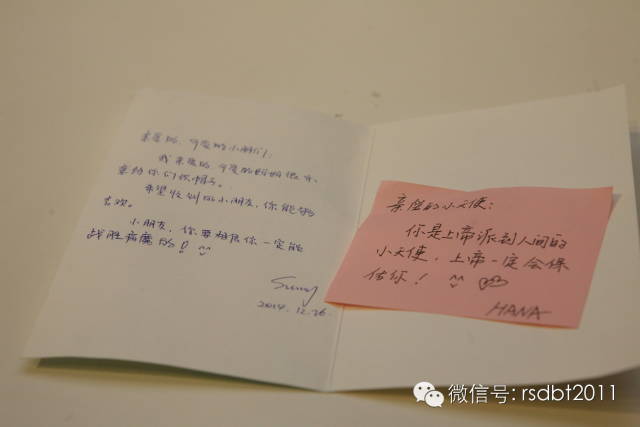 亲爱的、可爱的小朋友们:
我亲爱的、可爱的妈妈很开心
亲给你们织帽子。
希望收到的小朋友,你能够
喜欢。
小朋友,你要相信你一定能
战胜病魔的!
Sunny
2014.12.26.
亲爱的小天使:
你是上帝派到人间的
小天使,上帝一定会保
佑你!
HANA
微信号: rsdbt2011